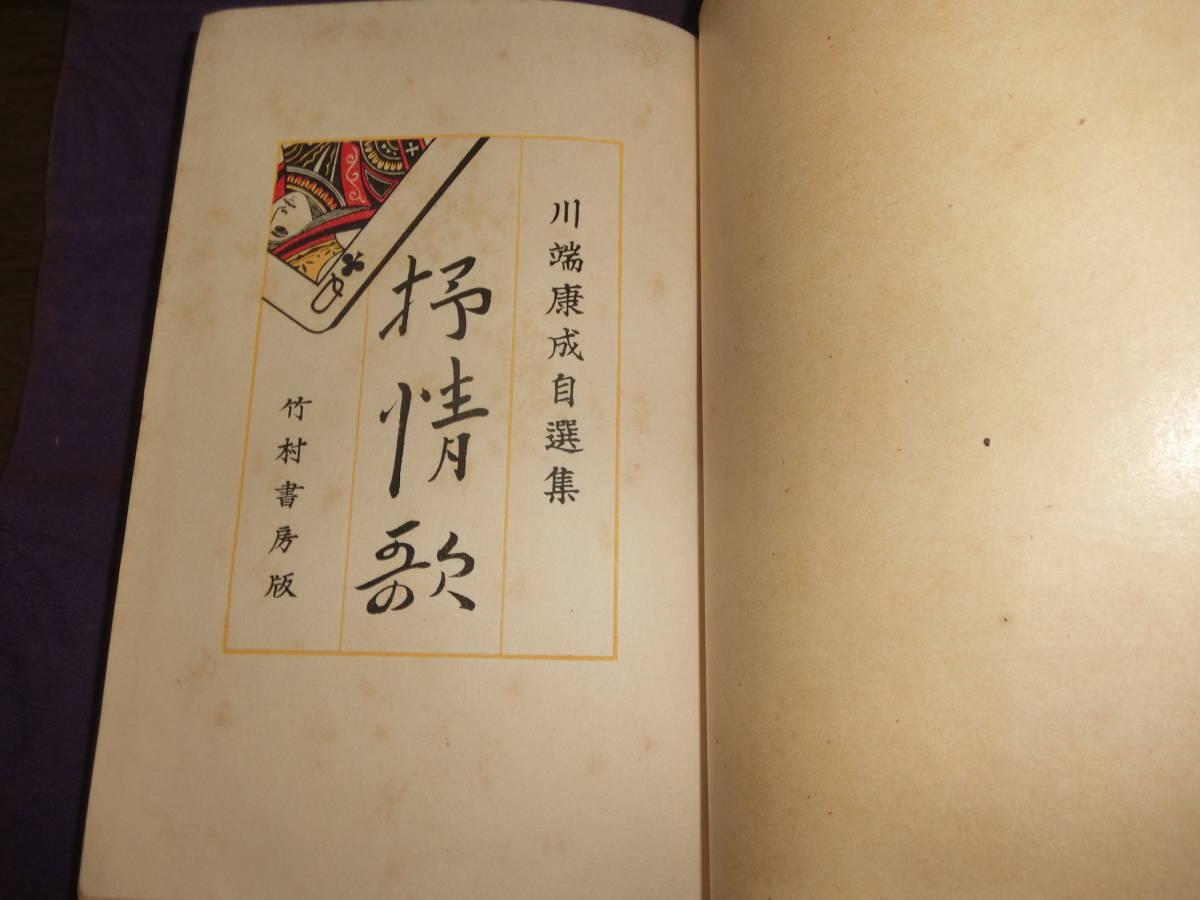 川端康成自選集
抒情歌
竹村書房版